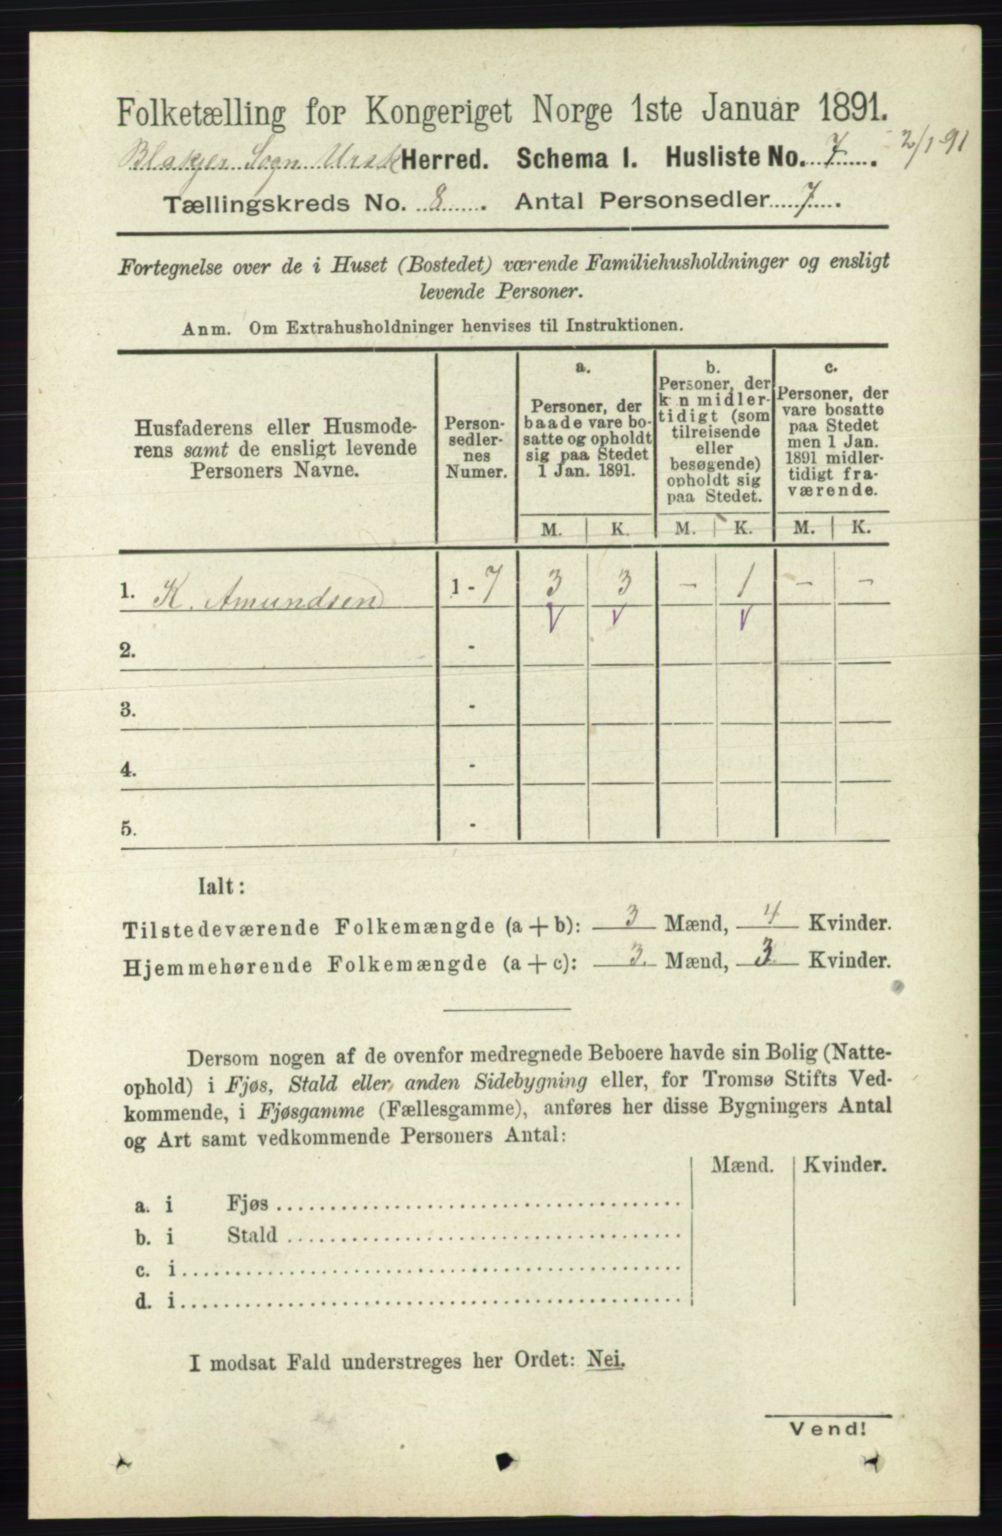 Folketælling for Kongeriget Norge 1ste Januar 1891.
Blakjer Sogn Ursk Herred. Schema I. Husliste No. 7. 2/1 91
Tællingskreds No. 8. Antal Personsedler 7.
Fortegnelse over de i Huset (Bostedet) værende Familiehusholdninger og ensligt
levende Personer.
Anm. Om Extrahusholdninger henvises til Instruktionen.
Husfaderens eller Husmode-
rens samt de ensligt levende
Personers Navne.
Person-
sedler-
nes
Numer.
a.
Personer, der
baade vare bo-
satte og opholdt
sig paa Stedet
1 Jan. 1891.
b.
Personer, der
k n midler-
tidigt (som
tilreisende
eller
besøgende)
opholdt sig
paa Stedet.
c.
Personer, der
vare bosatte
paa Stedet
men 1 Jan.
1891 midler-
tidigt fra-
værende.
M. K. M. K. M. K.
1. K. Amundsen 1 - 7 3 3 - 1 - -
V V V
2. -
3. -
4. -
5. -
Ialt:
Tilstedeværende Folkemængde (a + b): 3 Mænd, 4 Kvinder.
Hjemmehørende Folkemængde (a + c): 3. Mænd, 3 Kvinder.
Dersom nogen af de ovenfor medregnede Beboere havde sin Bolig (Natte-
ophold) i Fjøs, Stald eller anden Sidebygning eller, for Tromsø Stifts Ved-
kommende, i Fjøsgamme (Fællesgamme), anføres her disse Bygningers Antal
og Art samt vedkommende Personers Antal:
Mænd. Kvinder.
a. i Fjøs
b. i Stald
c. i
d. i
I modsat Fald understreges her Ordet: Nei.
Vend!